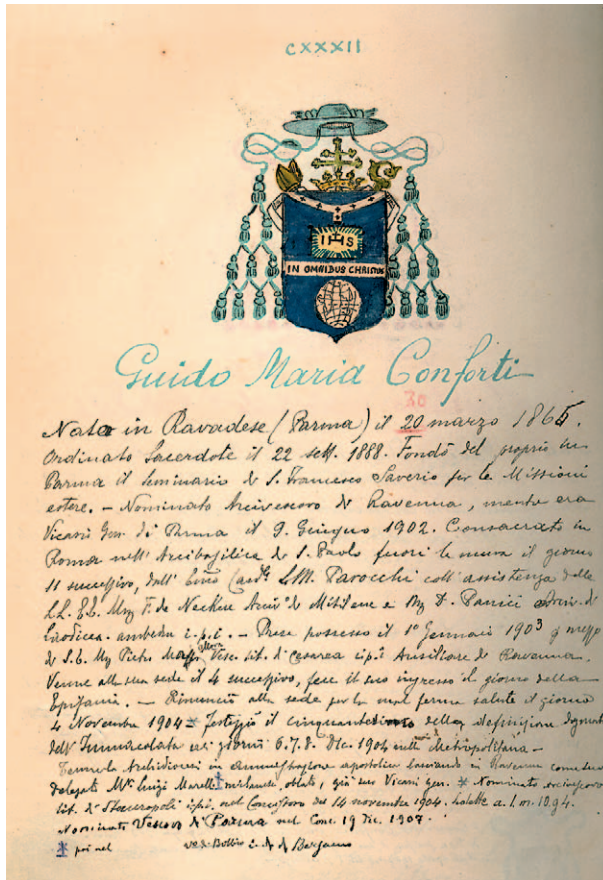 CXXXII
IHS
IN OMNIBUS CHRISTUS
Guido Maria Conforti
30
Nato in Ravadese (Parma) il 20 marzo 1865.
Ordinato Sacerdote il 22 sett. 1888. Fondò del proprio in
Parma il Seminario di S. Francesco Saverio per le Missioni
estere. – Nominato Arcivescovo di Ravenna, mentre era
Vicario Gen. di Parma il 9. Giugno 1902. Consacrato in
Roma nell' Arcibasilica di S. Paolo fuori le mura il giorno
11 successivo, dall' Card. L.M. Parocchi coll' assistenza delle
LL. EE. F. de Neckere di Mitilene e D. Panici Arciv. di
Laodicea. ambedue i.p.i. – Prese possesso il 1° Gennaio 1903 a mezzo
di S.E. Pietro Vesc. tit. di Cesarea i.p.i. Ausiliare di Ravenna.
Venne alla sua sede il 4 successivo, fece il suo ingresso il giorno della
Epifania. – Rinunciò alla sede per la mal ferma salute il giorno
4 Novembre 1904 festeggiò il della definizione
dell' Immacolata nei giorni 6.7.8. Dic. 1904 nella Metropolitana –
in amministrazione apostolica in Ravenna come
delegato Luigi oblato, già suo Vicario gen. Nominato arcivescovo
tit. di Stauropoli i.p.i. nel Concistoro del 14 novembre 1904.
Nominato Vescovo di nel Conc. 19 Dic. 1907.
poi nel di Bobbio e di Bergamo